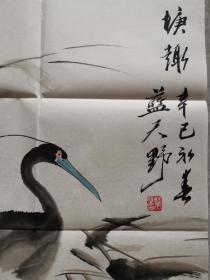 塘趣
辛巳初春
蓝天野